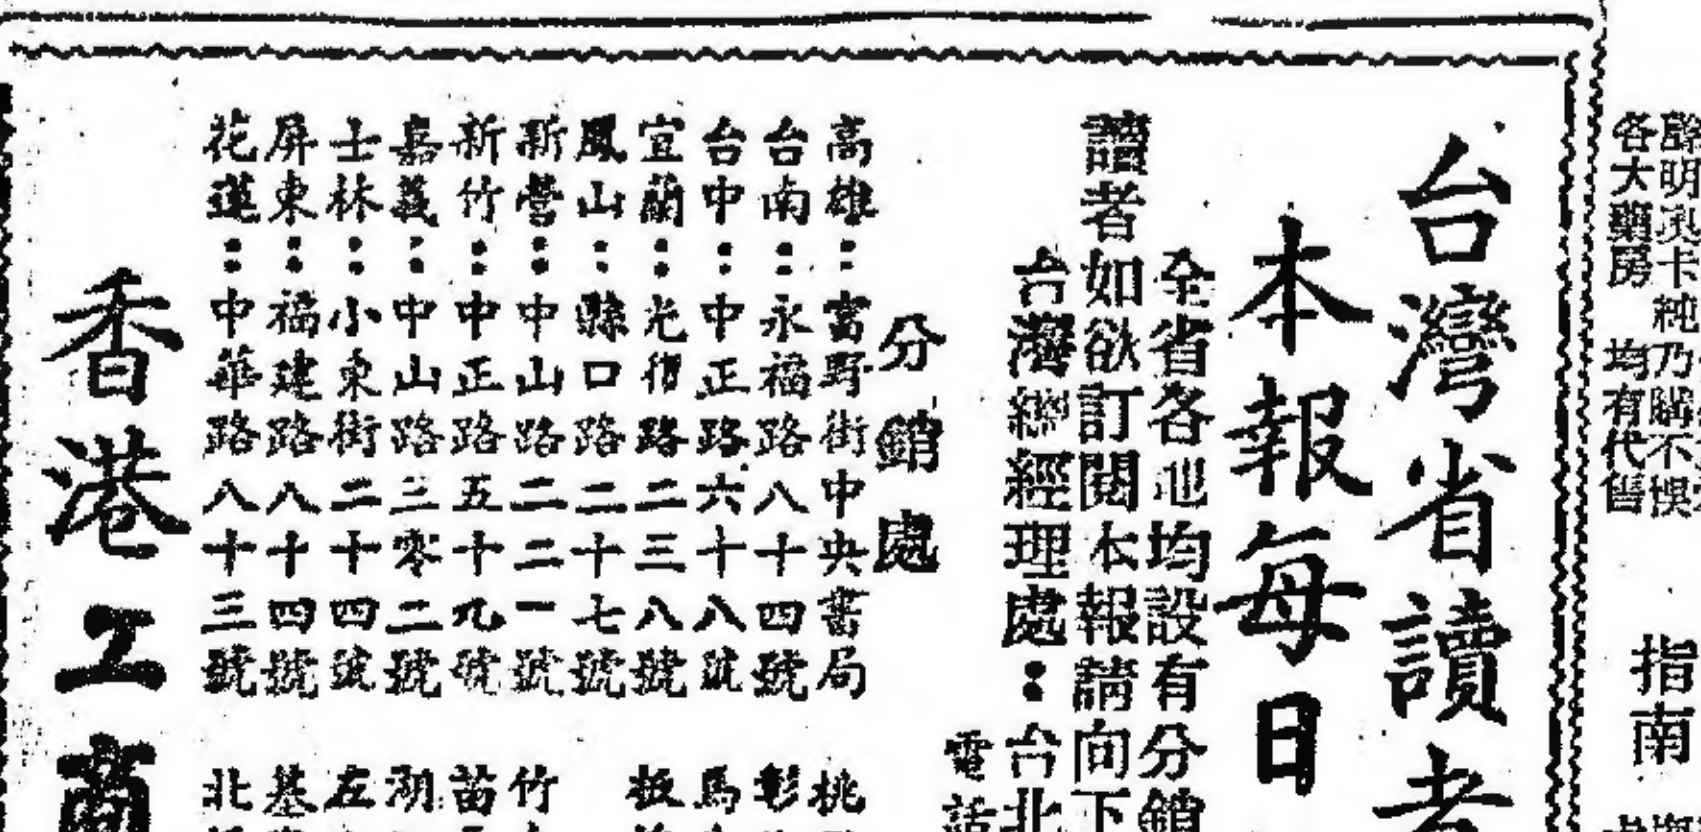 各大藥房 均有代售
指南
台灣省讀者
本報每日
全省各地均設有分銷
讀者如欲訂閱本報請向下
台灣總經理處：台北
電話
分銷處
高雄：富野街中央書局
台南：永福路八十四號
台中：中正路六十八號
宜蘭：光復路二三八號
鳳山：縣口路二十七號
新營：中山路二二一號
新竹：中正路五十九號
嘉義：中山路三零二號
士林：小東街二十四號
屏東：福建路八十四號
花蓮：中華路八十三號
桃
彰
馬
板
竹
苗
湖
左
基
北
香港工商